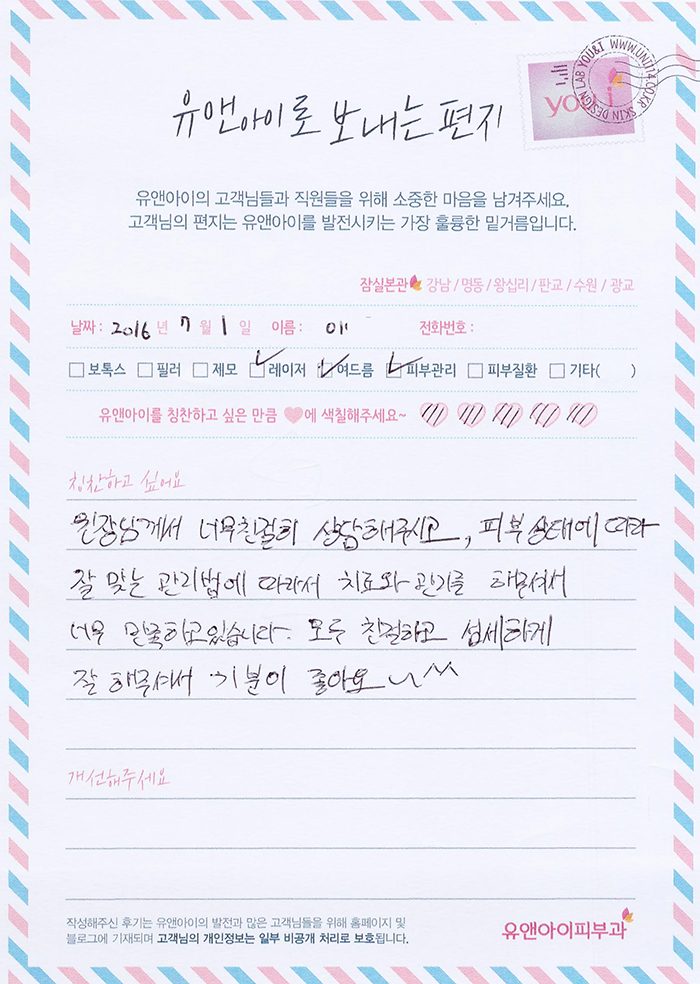 유앤아이로 보내는 편지
you i
SKIN DESIGN LAB YOU&I WWW.UNI114.CO.KR
유앤아이의 고객님들과 직원들을 위해 소중한 마음을 남겨주세요.
고객님의 편지는 유앤아이를 발전시키는 가장 훌륭한 밑거름입니다.
잠실본관 강남 / 명동 / 왕십리 / 판교 / 수원 / 광교
날짜 : 2016 년 7 월 1 일 이름 : 이 전화번호 :
보톡스 필러 제모 레이저 여드름 피부관리 피부질환 기타( )
유앤아이를 칭찬하고 싶은 만큼 에 색칠해주세요~
칭찬하고 싶어요
원장님께서 너무친절히 상담해주시고, 피부상태에 따라
잘 맞는 관리법에 따라서 치료와 관리를 해주셔서
너무 만족하고있습니다. 모두 친절하고 섬세하게
잘 해주셔서 기분이 좋아요 ^^
개선해주세요
작성해주신 후기는 유앤아이의 발전과 많은 고객님들을 위해 홈페이지 및
블로그에 기재되며 고객님의 개인정보는 일부 비공개 처리로 보호됩니다.
유앤아이피부과